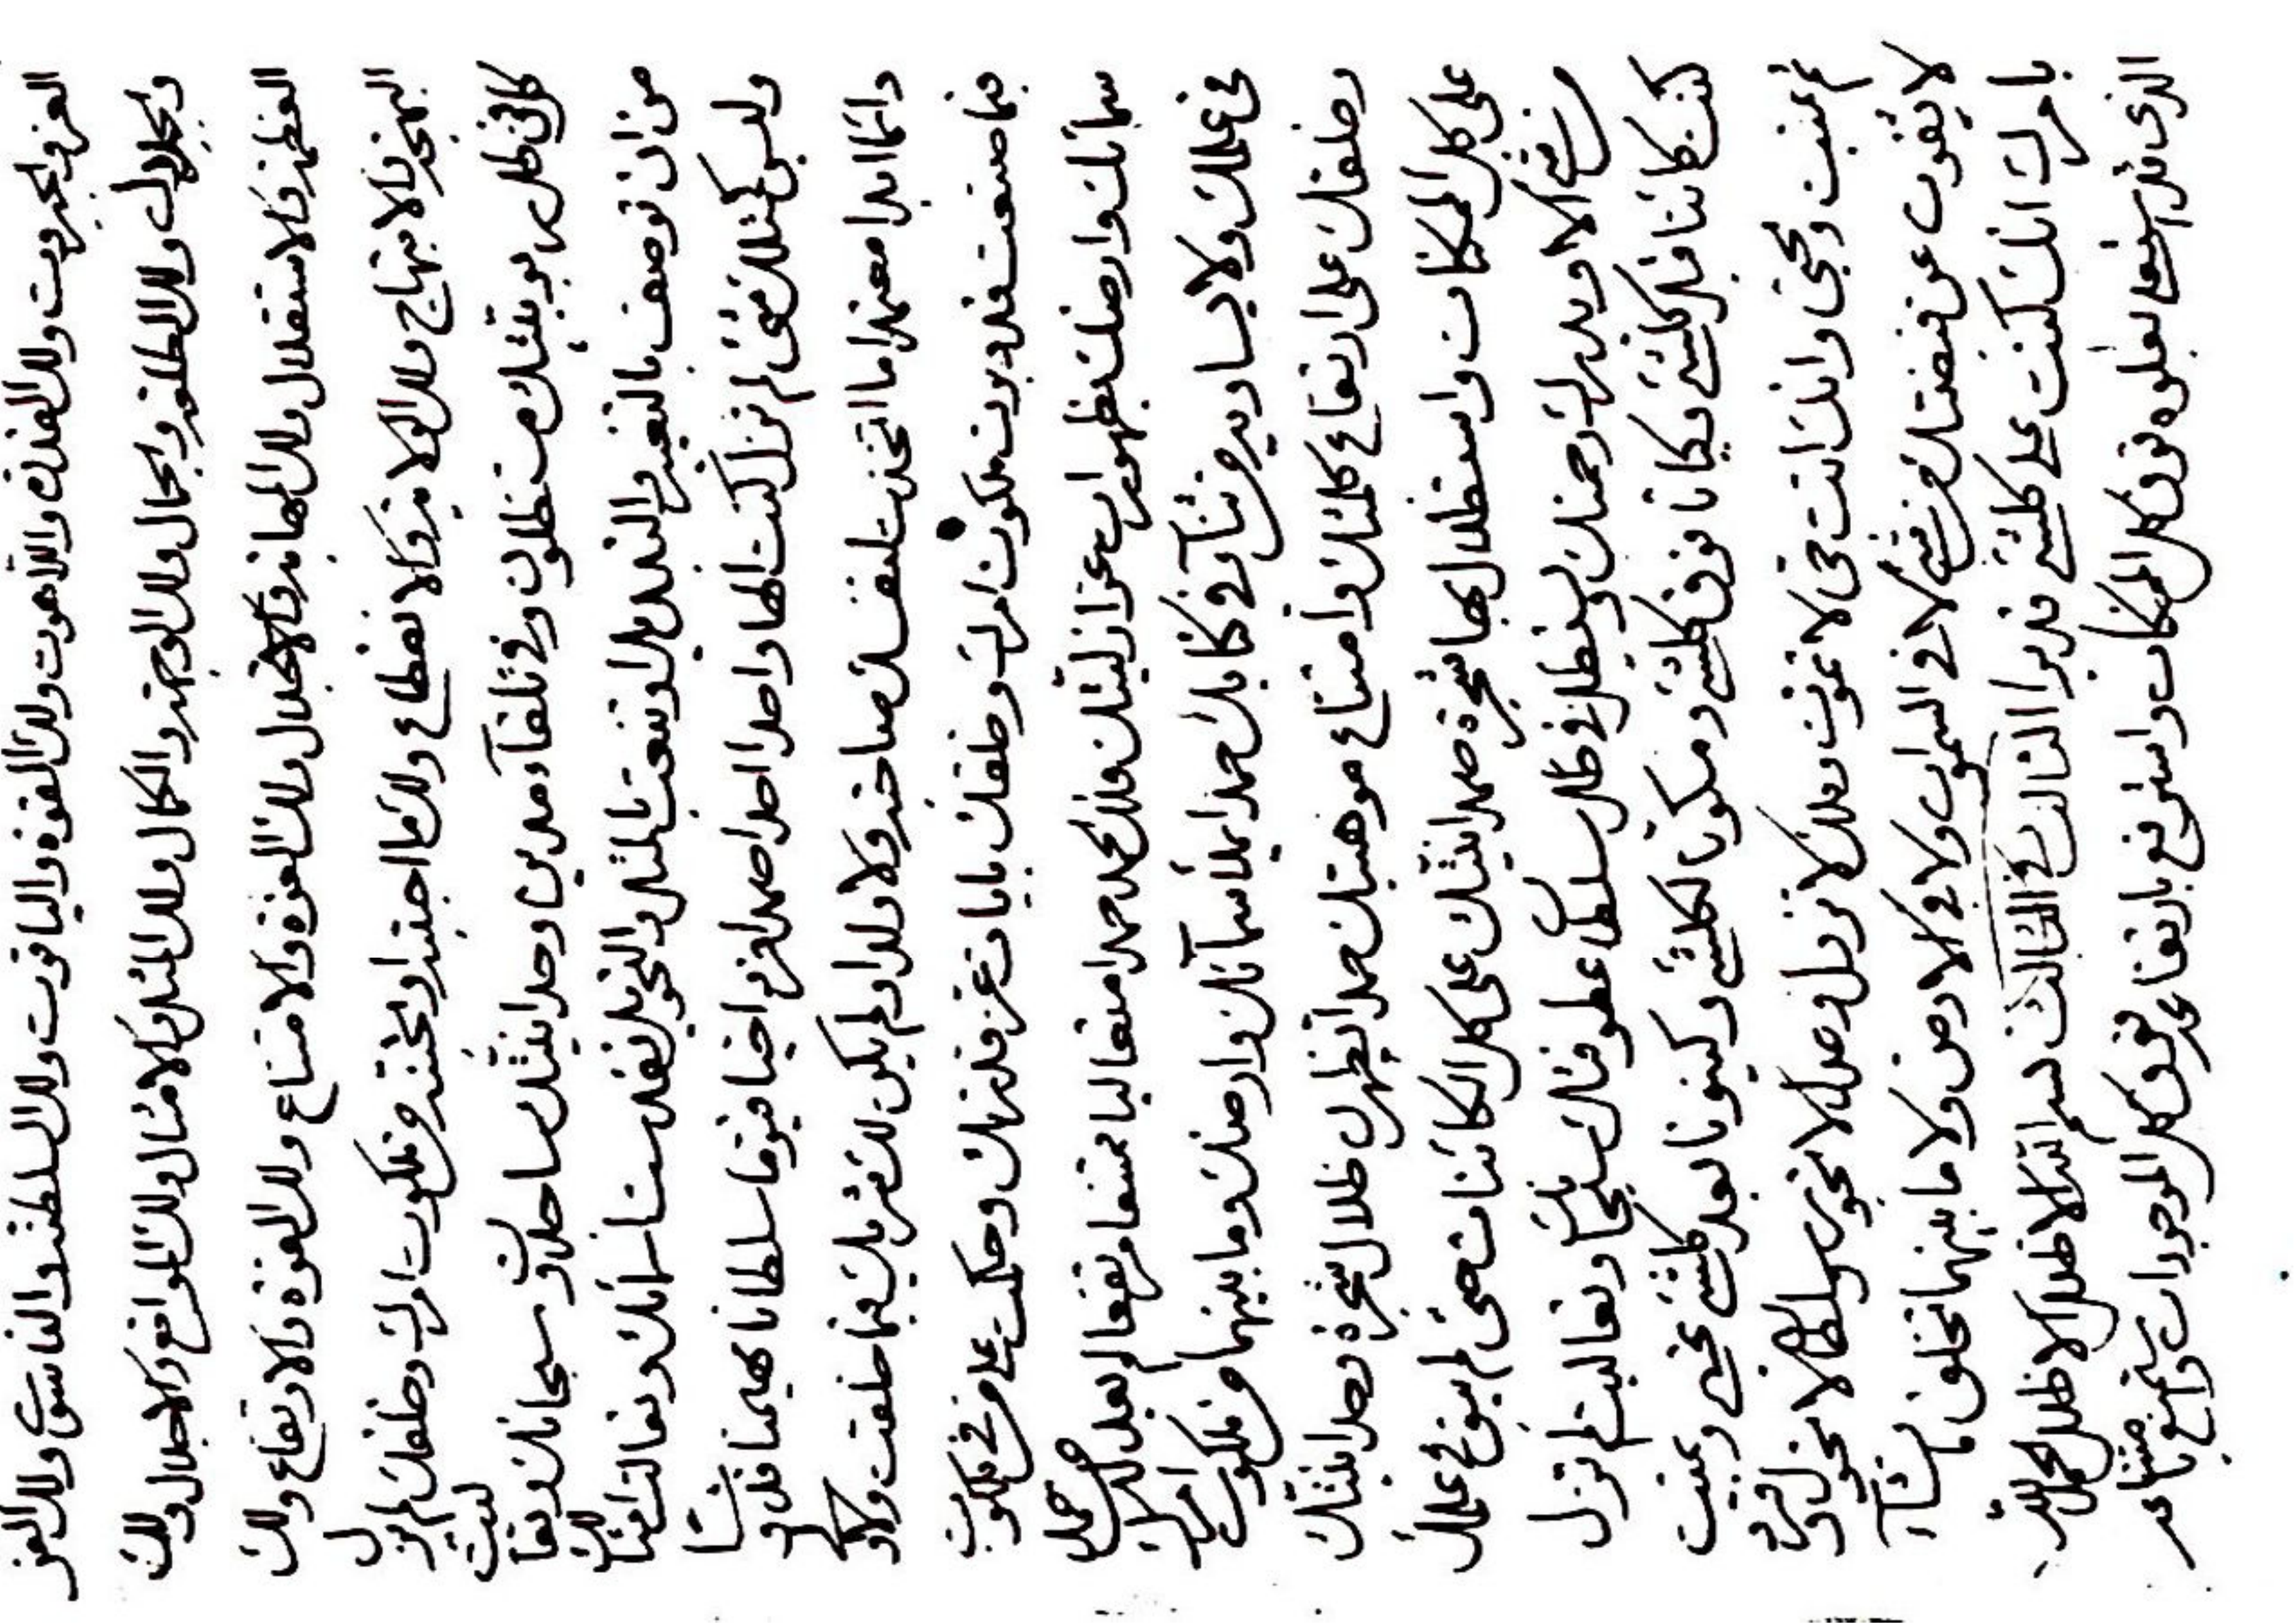 العزة والجبروت ولك القدرة واللاهوت ولك القوة والياقوت ولك السلطنة والناسوت ولك العز
والجلال ولك الطلعة والجمال ولك الوجهة والكمال ولك المثل والامثال ولك المواقع والاجلال ولك
العظمة والاستقلال ولك المهابة والاجلال ولك العزة والامتناع ولك القوة والارتفاع ولك
البهجة والابتهاج ولك الولاية والانقطاع ولك ما احببته او تحببته من ملكوت امرك وخلقك لم يزل
كل في ظل ربوبيتك مستظلون وفي تلقاء مدين وحدانيتك ساجدون سبحانك وتعاليت
من ان توصف بالتغيير والتبديل او تنعت بالمثل والتحويل تقدست اسمائك وتعالت امثالك
وليس كمثلك شيء لم تزل كنت الها واحدا احدا صمدا فردا حيا قيوما سلطانا مهيمنا قدوسا
دائما ابدا معتمدا ما اتخذت لنفسك صاحبة ولا ولدا ولم يكن لك شريك فيما خلقت ولا ولي
فيما صنعت قد دبرت ملكوت امرك وخلقك بايات عز قدرتك وحكمت على من في ملكوت
سمائك وارضك بظهورات عز ازليتك فلك الحمد حمدا متعاليا ممتنعا مرتفعا لم يعدله حمد
في علمك ولا يساويه من ثناء في كتابك حمدا يملأ سمائك وارضك وما بينهما من ملكوت امرك
وخلقك على ارتفاع كلمتك وامتناع موهبتك حمدا تظهرن ظلال شجرة وحدانيتك
على كل الممكنات واستظلال بها شجرة صمدانيتك على كل الكائنات حتى لم يبق في علمك
من شيء الا ويدركه رحمتك ويستظل في ظل سلطان عطوفتك سبحانك وتعاليت لم تزل
كنت كائنا قبل كل شيء وكيانا فوق كل شيء ومكونا لكل شيء وكينونا بعد كل شيء تحيي وتميت
ثم تميت وتحيي وانك انت حي لا تموت وملك لا تزول وعدل لا تجور وسلطان لا تحول وفرد
لا يفوت عن قبضتك من شيء لا في السموات ولا في الارض ولا ما بينهما تخلق ما تشاء
بامرك انك كنت على كل شيء قديرا الثالث في الثالث بسم الله الاظلل الاظلل الحمد لله
الذي قد استعلى بعلوه فوق كل الممكنات واسترفع بارتفاعه فوق كل الموجودات واستمنع بامتناعه